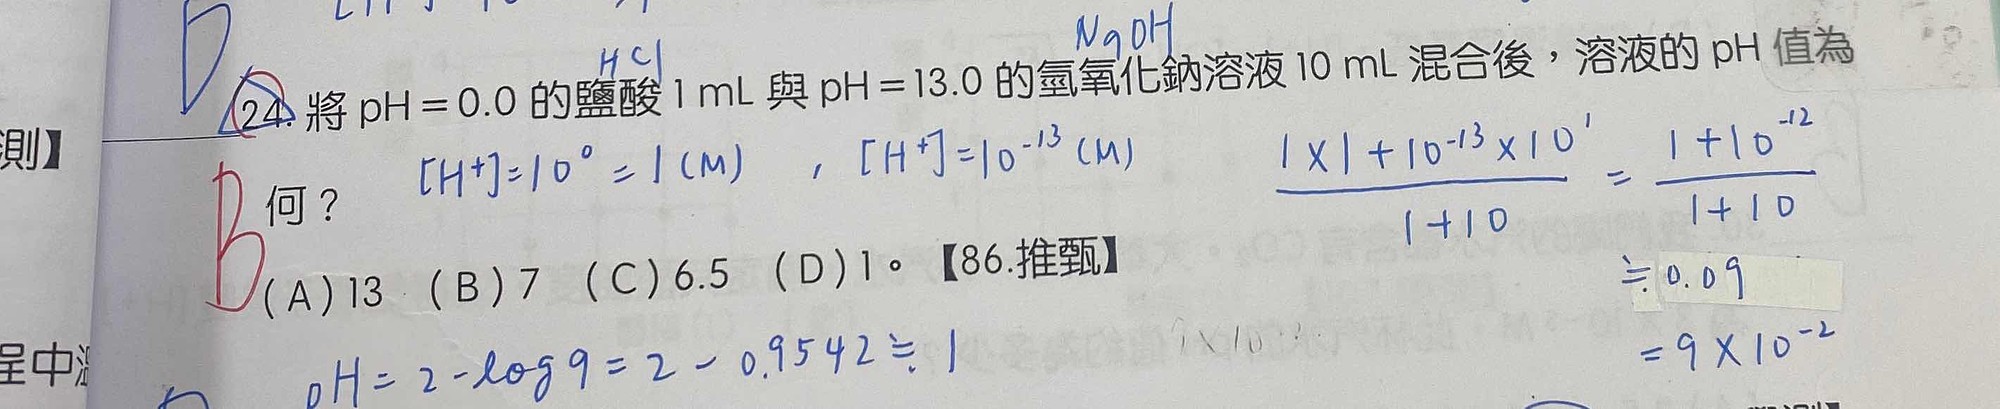 D
HCl
NaOH
24. 將 pH = 0.0 的鹽酸 1 mL 與 pH = 13.0 的氫氧化鈉溶液 10 mL 混合後，溶液的 pH 值為
測】
[H⁺]=10⁰ = 1 (M) , [H⁺]=10⁻¹³ (M)
1×1+10⁻¹³×10¹ / 1+10 = 1+10⁻¹² / 1+10
B
何？
≒ 0.09
(A) 13 (B) 7 (C) 6.5 (D) 1。【86.推甄】
= 9×10⁻²
pH = 2-log9 = 2 - 0.9542 ≒ 1
呈中